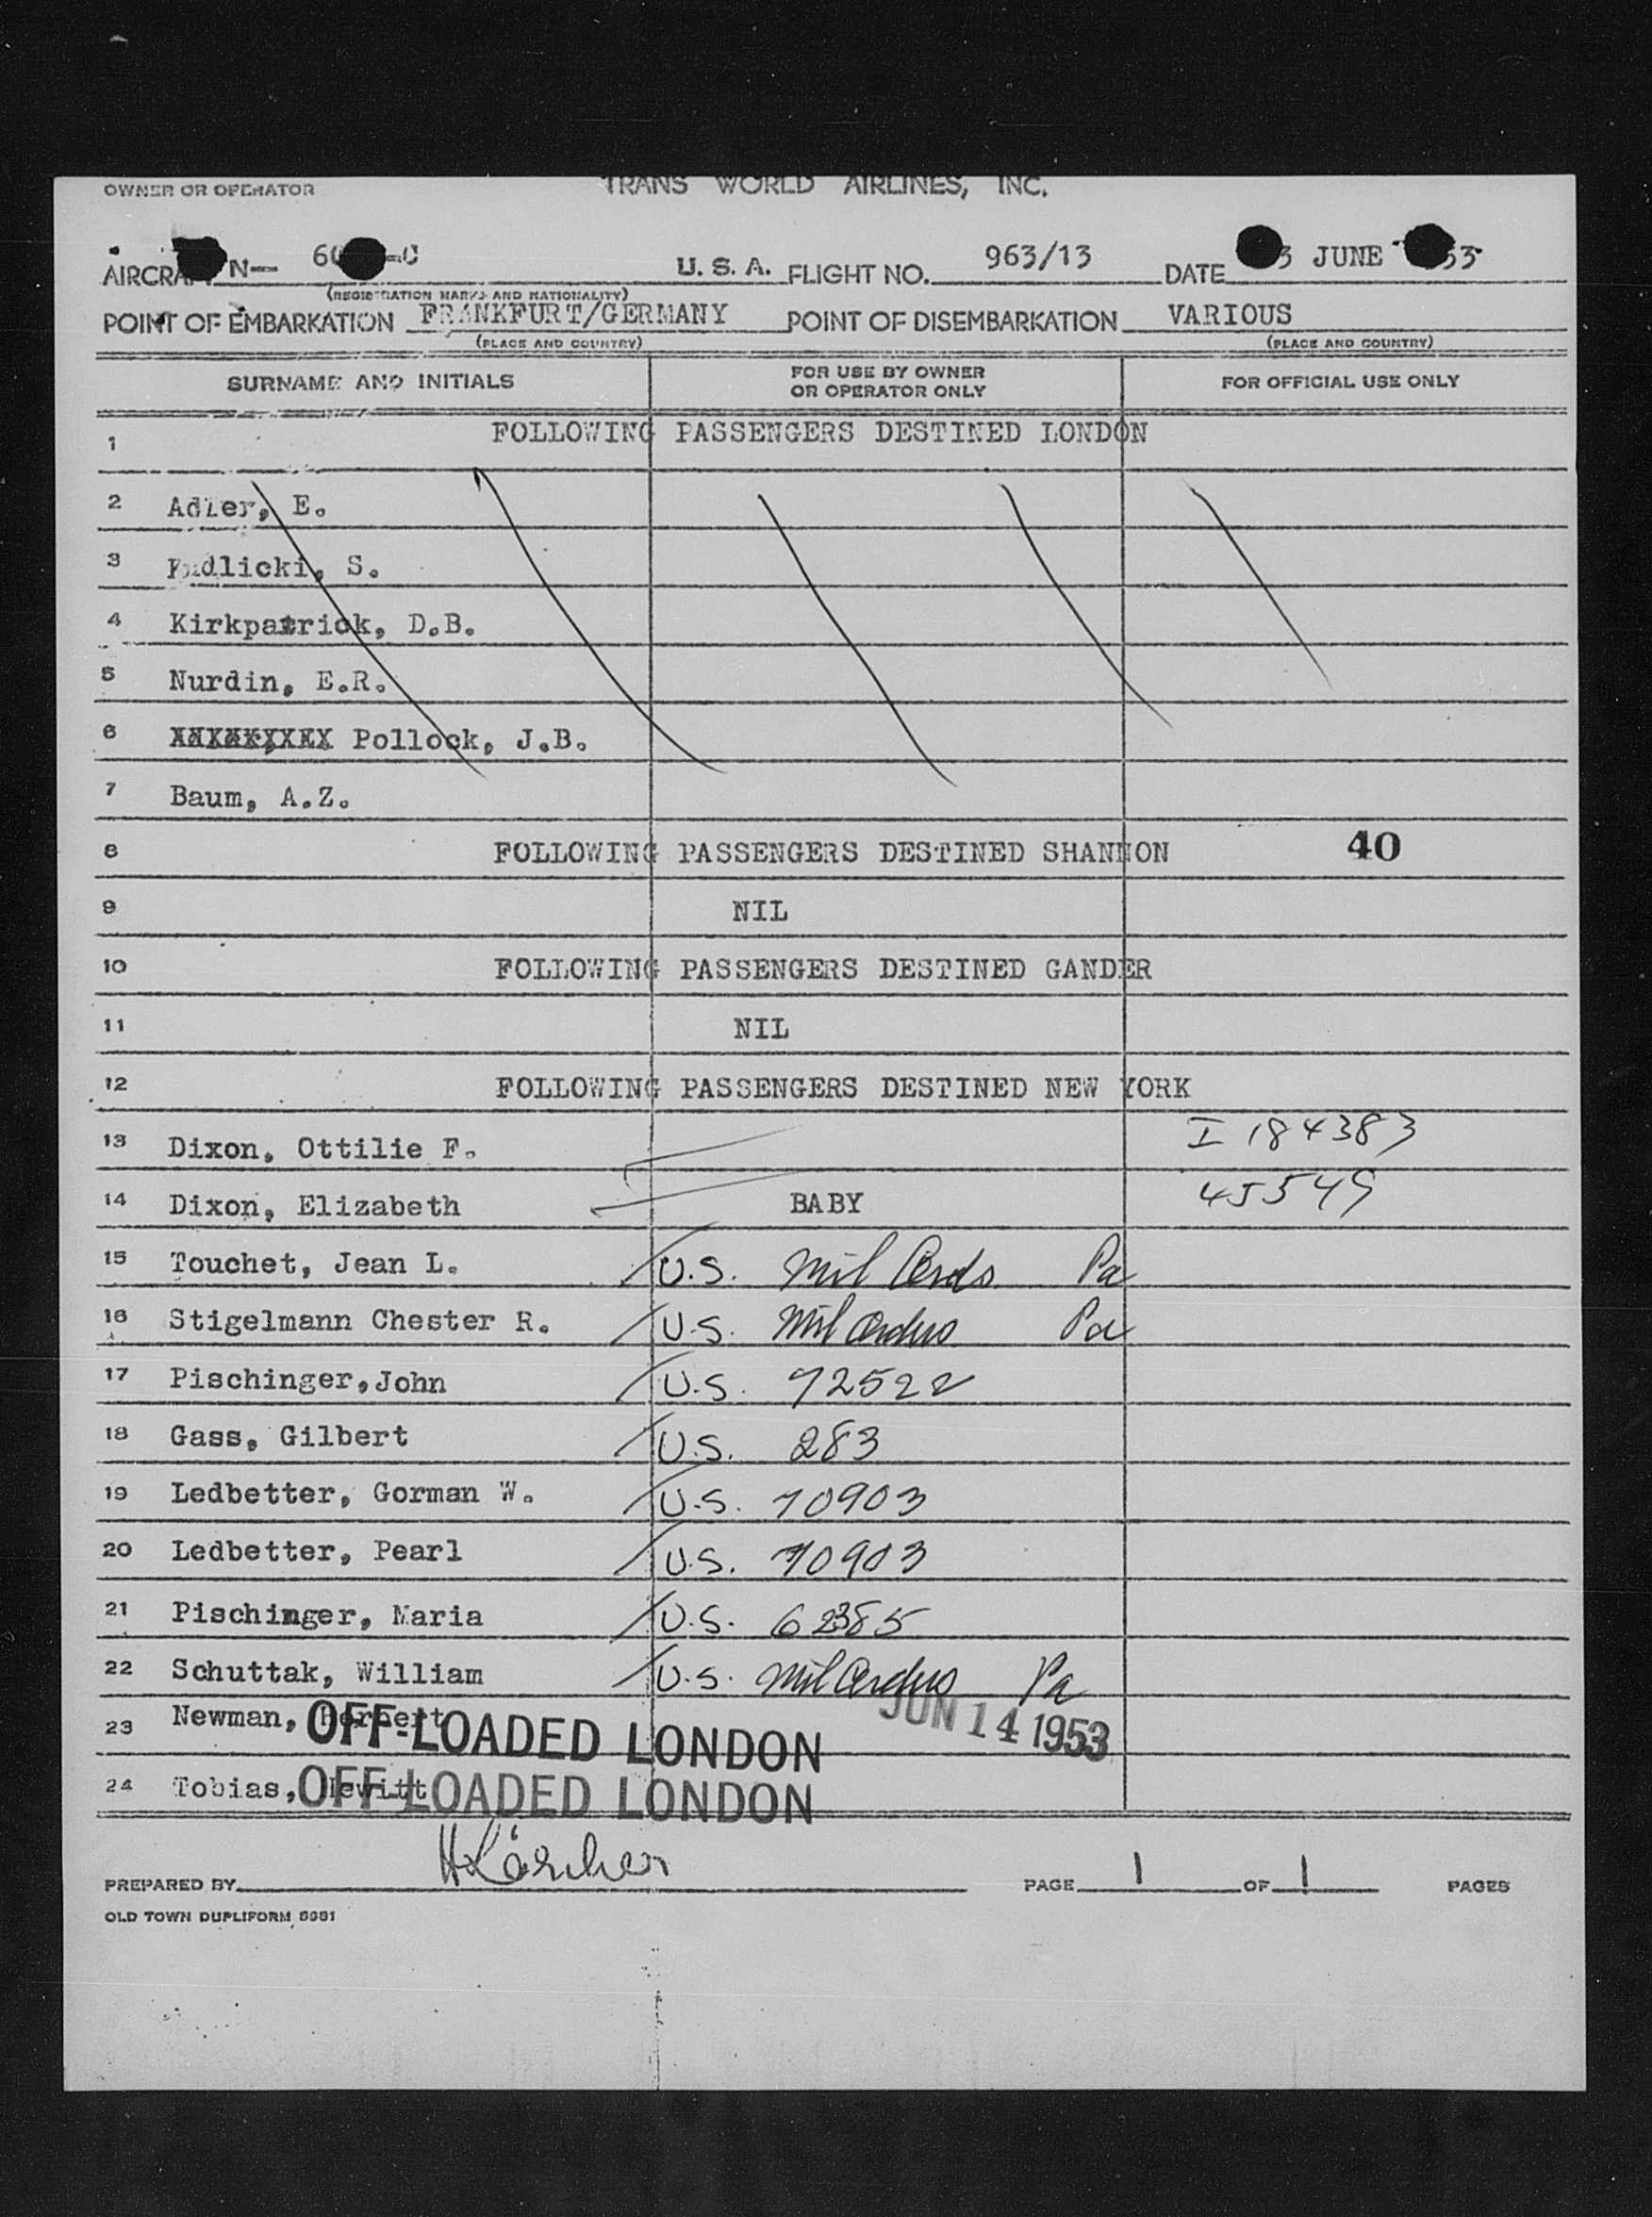 OWNER OR OPERATOR TRANS WORLD AIRLINES, INC.
AIRCRAFT N— U. S. A. FLIGHT NO. 963/13 DATE 3 JUNE 53
(REGISTRATION MARKS AND NATIONALITY)
POINT OF EMBARKATION FRANKFURT/GERMANY POINT OF DISEMBARKATION VARIOUS
(PLACE AND COUNTRY) (PLACE AND COUNTRY)
SURNAME AND INITIALS FOR USE BY OWNER OR OPERATOR ONLY FOR OFFICIAL USE ONLY
1 FOLLOWING PASSENGERS DESTINED LONDON
2 Adler, E.
3 S.
4 Kirkpatrick, D.B.
5 Nurdin, E.R.
6 Pollock, J.B.
7 Baum, A.Z.
8 FOLLOWING PASSENGERS DESTINED SHANNON 40
9 NIL
10 FOLLOWING PASSENGERS DESTINED GANDER
11 NIL
12 FOLLOWING PASSENGERS DESTINED NEW YORK
13 Dixon, Ottilie F. I 184383
14 Dixon, Elizabeth BABY 45549
15 Touchet, Jean L. U.S. Mil Pa
16 Stigelmann Chester R. U.S. Mil Orders Pa
17 Pischinger,John U.S. 72522
18 Gass, Gilbert U.S. 283
19 Ledbetter, Gorman W. U.S. 70903
20 Ledbetter, Pearl U.S. 70903
21 Pischinger, Maria U.S. 62385
22 Schuttak, William U.S. Mil Orders Pa
23 Newman, Herbert OFF-LOADED LONDON JUN 14 1953
24 Tobias, Hewitt OFF-LOADED LONDON
PREPARED BY HKärcher PAGE 1 OF 1 PAGES
OLD TOWN DUPLIFORM